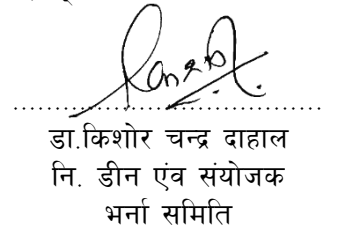 डा.किशोर चन्द्र दाहाल
नि. डीन एंव संयोजक
भर्ना समिति